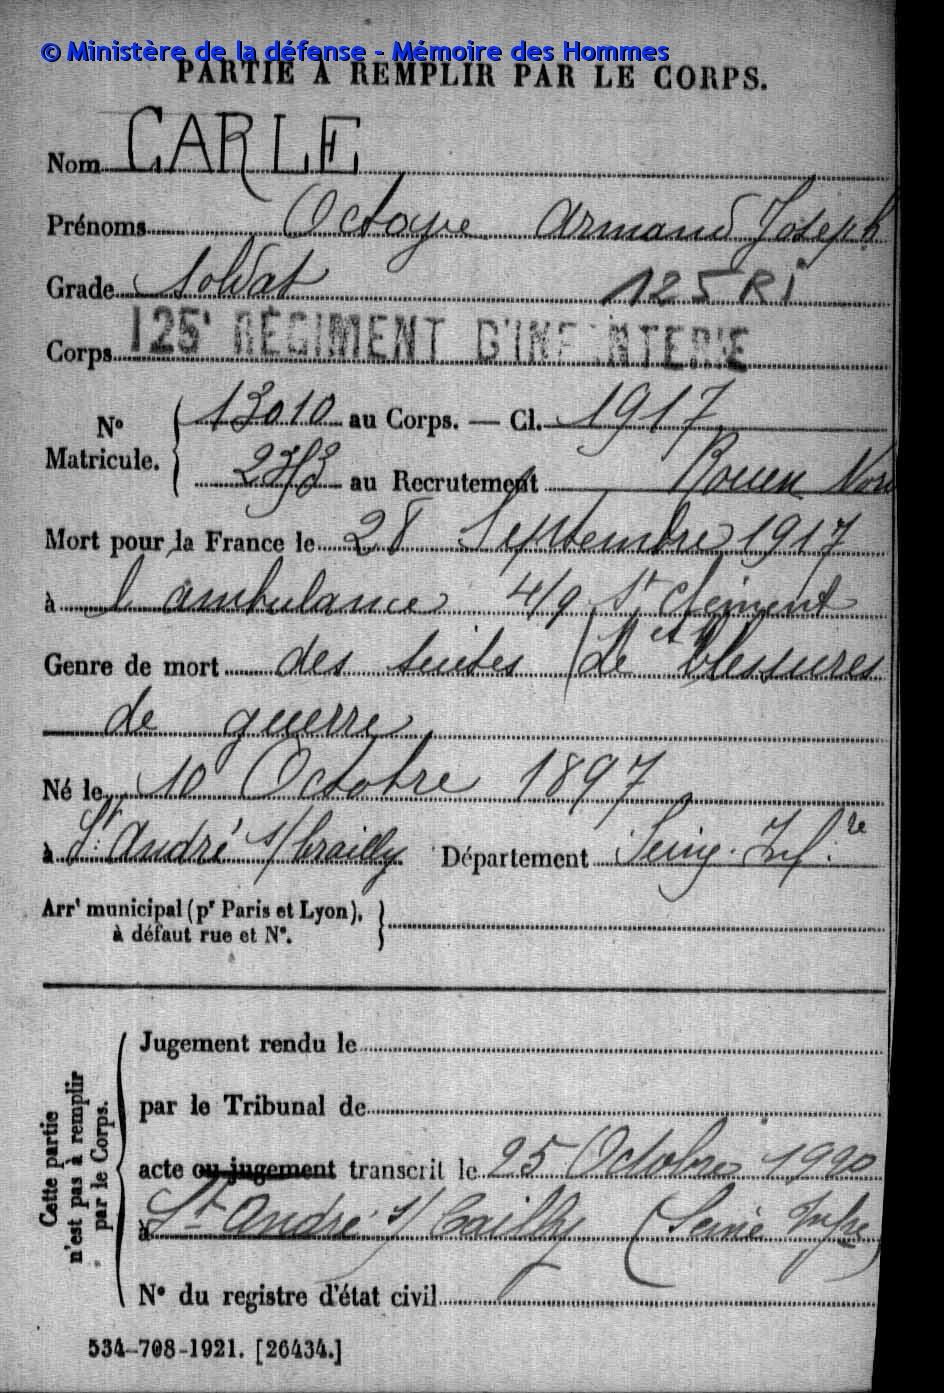 © Ministère de la défense - Mémoire des Hommes
PARTIE À REMPLIR PAR LE CORPS.
Nom CARLE
Prénoms Octave Armand Joseph
Grade Soldat 125 RI
Corps 125e RÉGIMENT D'INFANTERIE
No Matricule. { 13010 au Corps. — Cl. 1917
au Recrutement Rouen Nord
Mort pour la France le 28 Septembre 1917
à l'ambulance 4/9 St Clément
(M et M)
Genre de mort des suites de blessures
de guerre
Né le 10 Octobre 1897
à St André s/ Cailly Département Seine Infre
Arrt municipal (pr Paris et Lyon), }
à défaut rue et No.
Cette partie n'est pas à remplir par le Corps.
Jugement rendu le
par le Tribunal de
acte ou jugement transcrit le 25 Octobre 1920
à St André s/ Cailly (Seine Infre)
No du registre d'état civil
534-708-1921. [26434.]